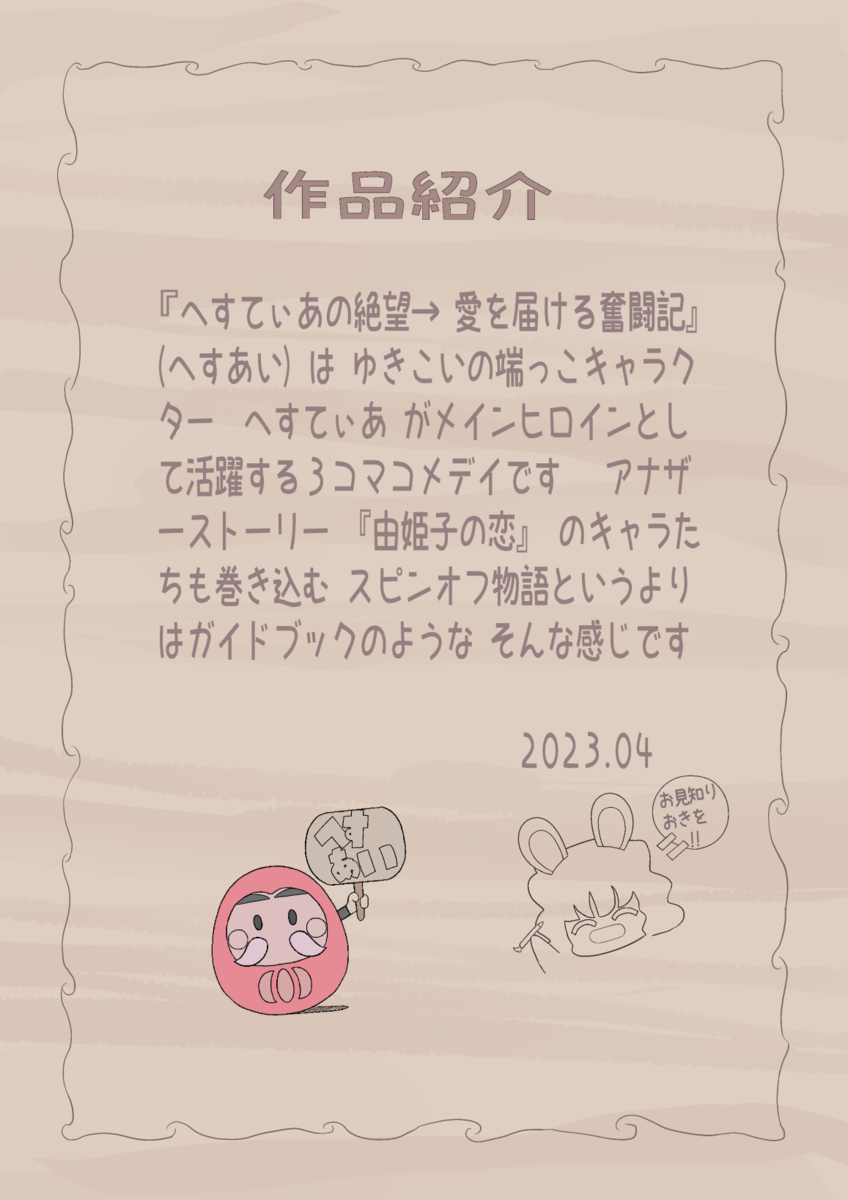 作品紹介
『へすてぃあの絶望→ 愛を届ける奮闘記』
(へすあい) は ゆきこいの端っこキャラク
ター　へすてぃあ がメインヒロインとし
て活躍する３コマコメデイです　アナザ
ーストーリー 『由姫子の恋』 のキャラた
ちも巻き込む スピンオフ物語というより
はガイドブックのような そんな感じです
2023.04
お見知り
おきを
!!